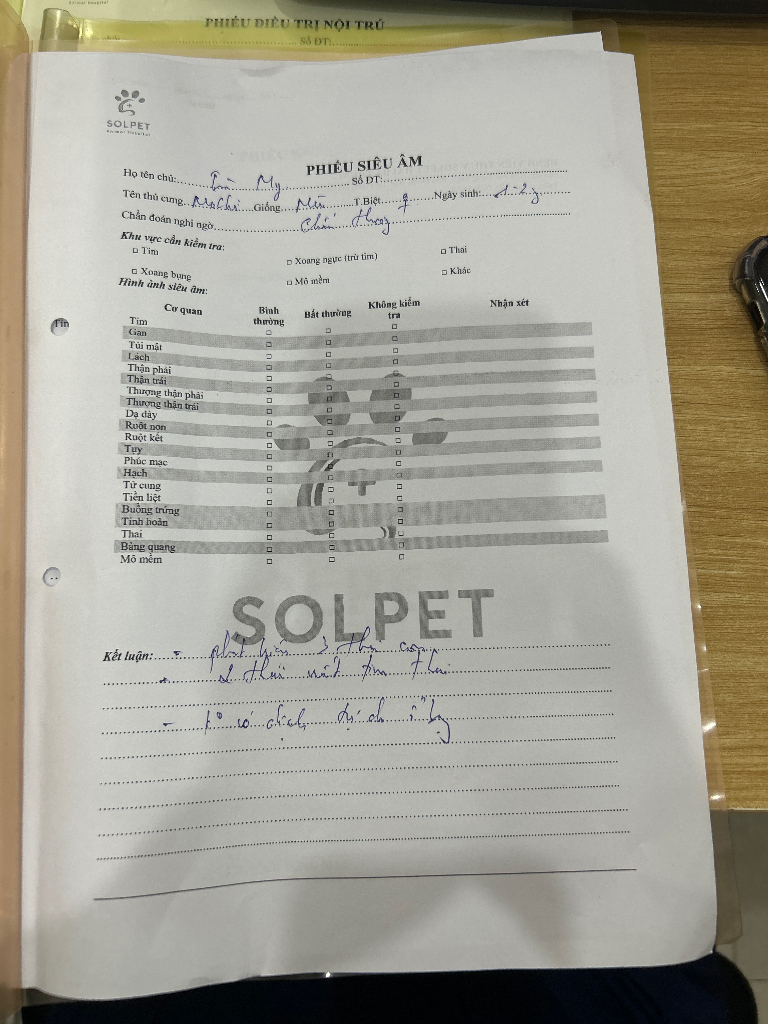 PHIẾU ĐIỀU TRỊ NỘI TRÚ
SỐ ĐT:
SOLPET
Animal Hospital
PHIẾU SIÊU ÂM
Họ tên chủ: My Số ĐT:
Tên thú cưng Mochi Giống Mèo T.Biệt ♀ Ngày sinh: 1-2y
Chẩn đoán nghi ngờ Chấn thương
Khu vực cần kiểm tra:
□ Tim □ Xoang ngực (trừ tim) □ Thai
□ Xoang bụng □ Mô mềm □ Khác
Hình ảnh siêu âm:
Cơ quan Bình thường Bất thường Không kiểm tra Nhận xét
Tim □ □ □
Gan □ □ □
Túi mật □ □ □
Lách □ □ □
Thận phải □ □ □
Thận trái □ □ □
Thượng thận phải □ □ □
Thượng thận trái □ □ □
Dạ dày □ □ □
Ruột non □ □ □
Ruột kết □ □ □
Tụy □ □ □
Phúc mạc □ □ □
Hạch □ □ □
Tử cung □ □ □
Tiền liệt □ □ □
Buồng trứng □ □ □
Tinh hoàn □ □ □
Thai □ □ □
Bàng quang □ □ □
Mô mềm □ □ □
SOLPET
Kết luận: - phát hiện 3 thai
- 2 thai mất tim thai
- k° có dịch tự do ổ bụng
Tin